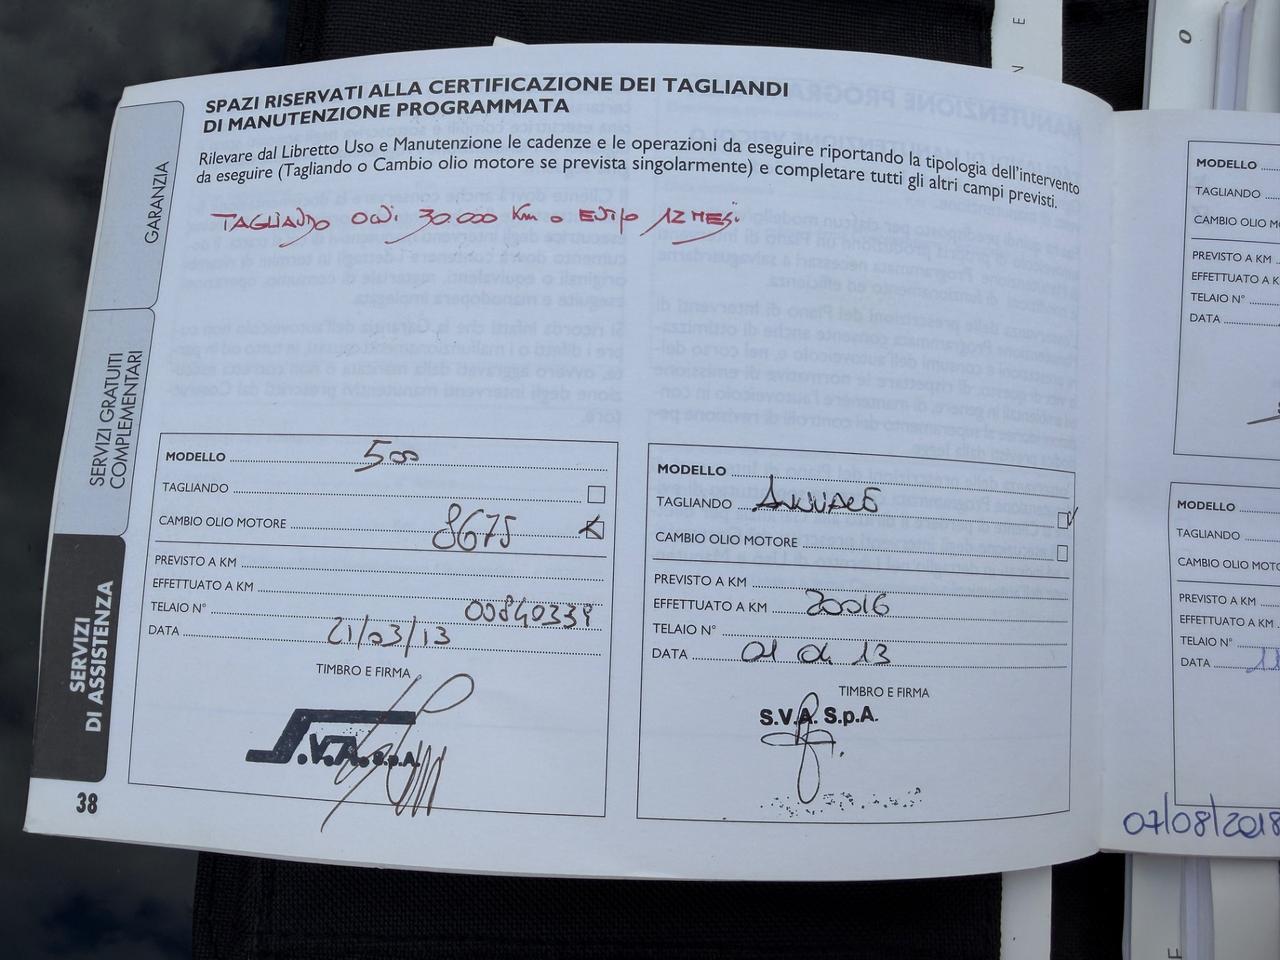 SPAZI RISERVATI ALLA CERTIFICAZIONE DEI TAGLIANDI
DI MANUTENZIONE PROGRAMMATA
Rilevare dal Libretto Uso e Manutenzione le cadenze e le operazioni da eseguire riportando la tipologia dell'intervento
da eseguire (Tagliando o Cambio olio motore se prevista singolarmente) e completare tutti gli altri campi previsti.
TAGLIANDO OGNI 30.000 Km O 12 MESI
GARANZIA
SERVIZI GRATUITI
COMPLEMENTARI
SERVIZI
DI ASSISTENZA
38
MODELLO 500
TAGLIANDO
CAMBIO OLIO MOTORE 8675
PREVISTO A KM
EFFETTUATO A KM
TELAIO N° 00840339
DATA 21/03/13
TIMBRO E FIRMA
S.V.A. S.p.A.
MODELLO
TAGLIANDO ANNUALE
CAMBIO OLIO MOTORE
PREVISTO A KM
EFFETTUATO A KM 20016
TELAIO N°
DATA 01 04 13
TIMBRO E FIRMA
S.V.A. S.p.A.
MODELLO
TAGLIANDO
CAMBIO OLIO M
PREVISTO A KM
EFFETTUATO A K
TELAIO N°
DATA
MODELLO
TAGLIANDO
CAMBIO OLIO MOTO
PREVISTO A KM
EFFETTUATO A KM
TELAIO N°
DATA
07/08/2018